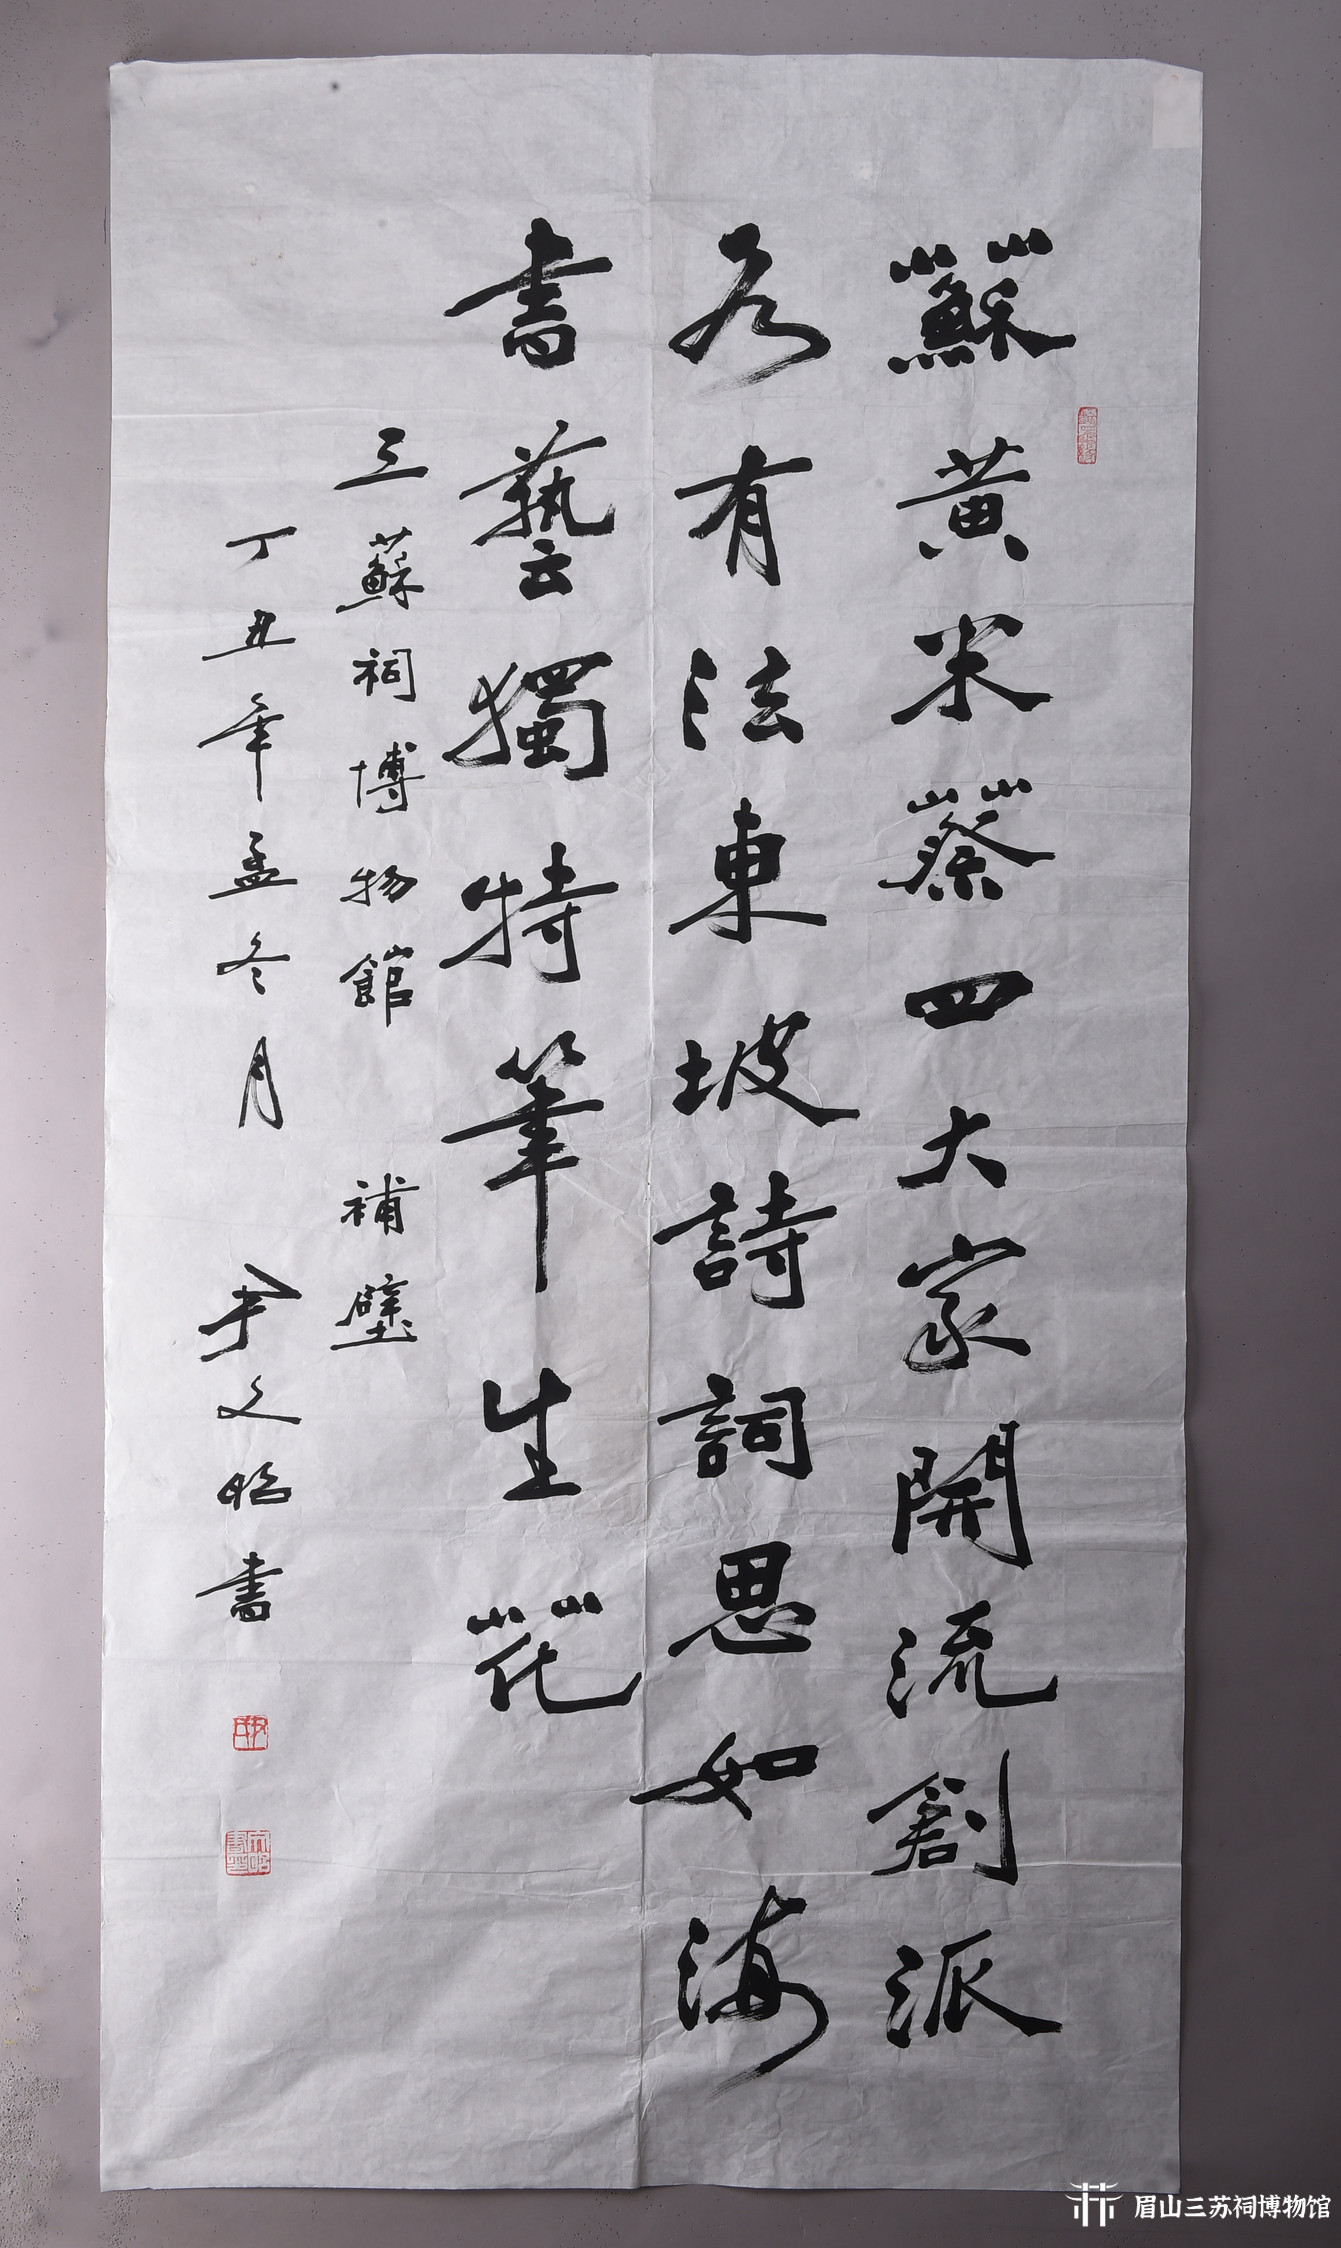 蘇黄米蔡四大家開流創派
各有法東坡詩詞思如海
書藝獨特筆生花
三蘇祠博物館 補壁
丁丑年孟冬月 尹文昭書
眉山三苏祠博物馆